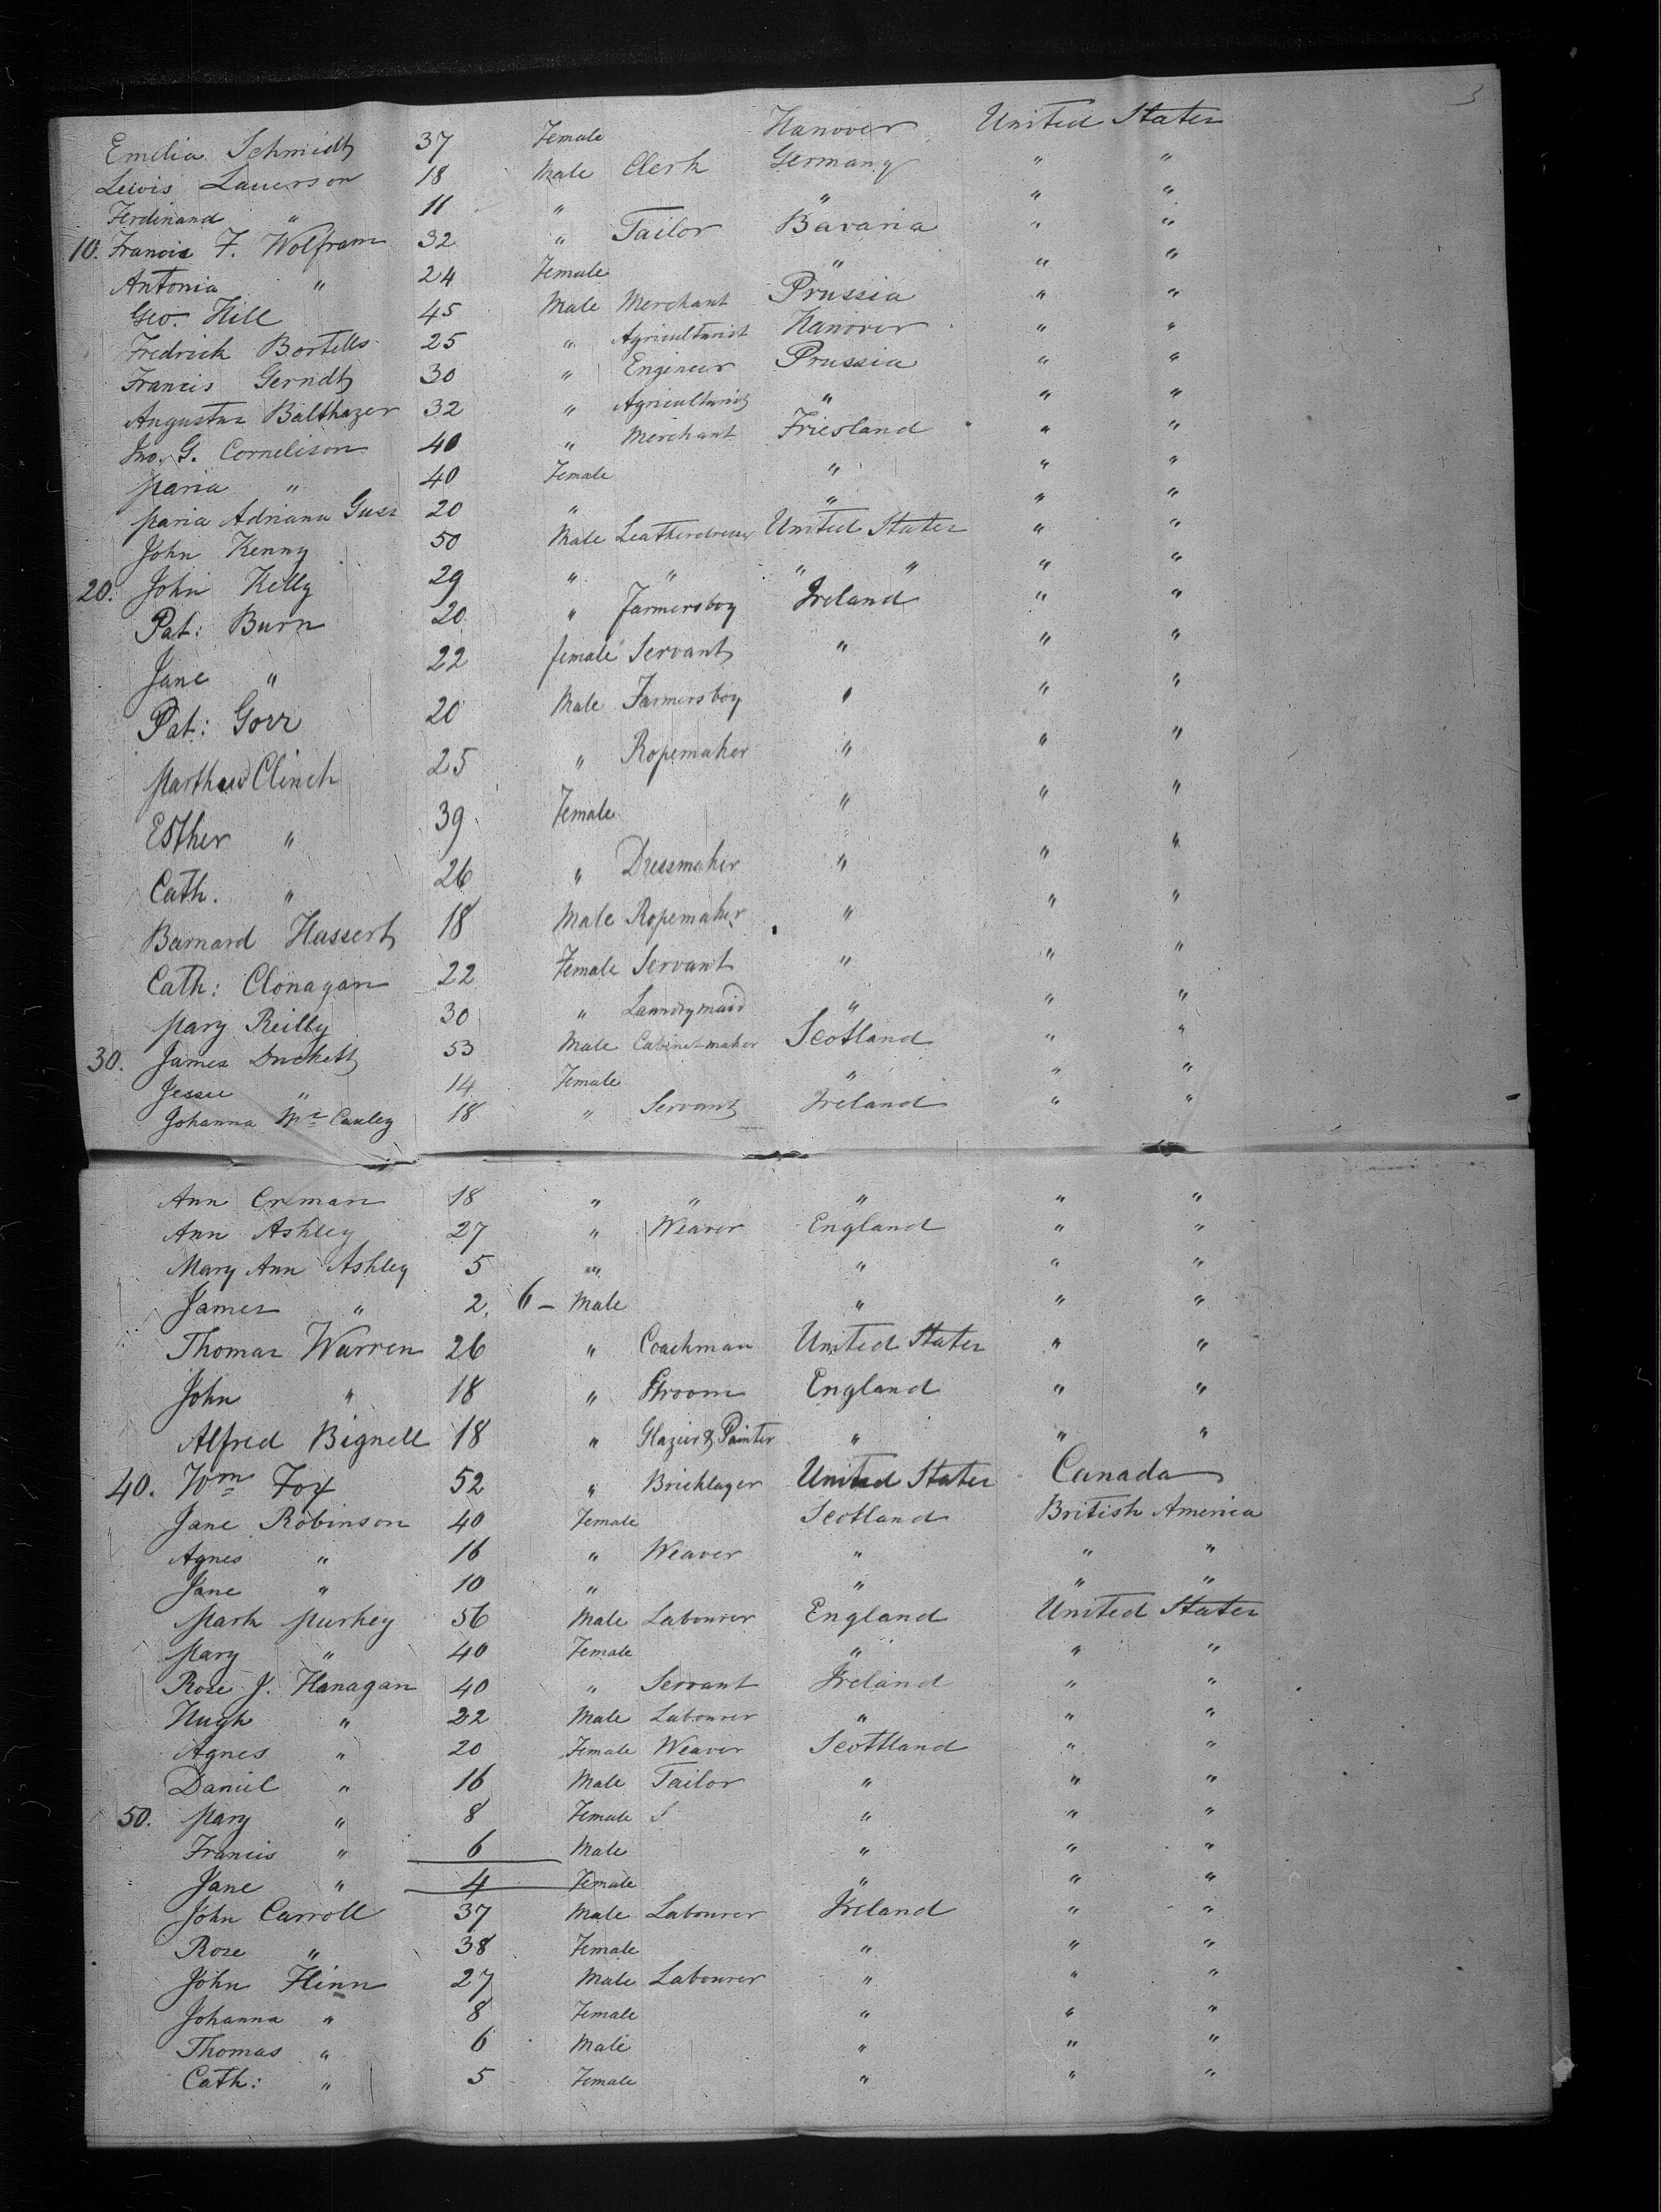 3
Emelia Schmidt 37 Female Hanover United States
Lewis Lauerson 18 Male Clerk Germany " "
Ferdinand " 11 " " " "
10. Francis F. Wolfram 32 " Tailor Bavaria " "
Antonia " 24 Female " " "
Geo. Hill 45 Male Merchant Prussia " "
Fredrick Bortells 25 " Agriculturist Hanover " "
Francis Gerndt 30 " Engineer Prussia " "
Augustus Balthazer 32 " Agriculturist " " "
Jno. G. Cornelison 40 " Merchant Friesland " "
Maria " 40 Female " " "
Maria Adriana 20 " " " "
John Kenny 50 Male Leatherdresser United States " "
20. John Kelly 29 " " " " " "
Pat: Burn 20 " Farmersboy Ireland " "
Jane " 22 female Servant " " "
Pat: Gorr 20 Male Farmersboy " " "
Marthew Clinch 25 " Ropemaker " " "
Esther " 39 Female " " "
Cath. " 26 " Dressmaker " " "
Barnard Hussert 18 Male Ropemaker " " "
Cath: Clonagan 22 Female Servant " " "
Mary Reilly 30 " Laundrymaid " " "
30. James Duckett 53 Male Cabinet-maker Scotland " "
Jessie " 14 Female " " "
Johanna Mc Cauley 18 " Servant Ireland " "
Ann Creman 18 " " " " "
Ann Ashley 27 " Weaver England " "
Mary Ann Ashley 5 " " " "
James " 2. 6 – Male " " "
Thomas Warren 26 " Coachman United States " "
John " 18 " Groom England " "
Alfred Bignell 18 " Glazier & Painter " " "
40. Wm Fox 52 " Bricklayer United States Canada
Jane Robinson 40 Female Scotland British America
Agnes " 16 " Weaver " " "
Jane " 10 " " " "
Mark Murkey 56 Male Labourer England United States
Mary " 40 Female " " "
Rose J. Hanagan 40 " Servant Ireland " "
Hugh " 22 Male Labourer " " "
Agnes " 20 Female Weaver Scottland " "
Daniel " 16 Male Tailor " " "
50. Mary " 8 Female S " " "
Francis " 6 Male " " "
Jane " 4 Female " " "
John Carroll 37 Male Labourer Ireland " "
Rose " 38 Female " " "
John Flinn 27 Male Labourer " " "
Johanna " 8 Female " " "
Thomas " 6 Male " " "
Cath: " 5 Female " " "